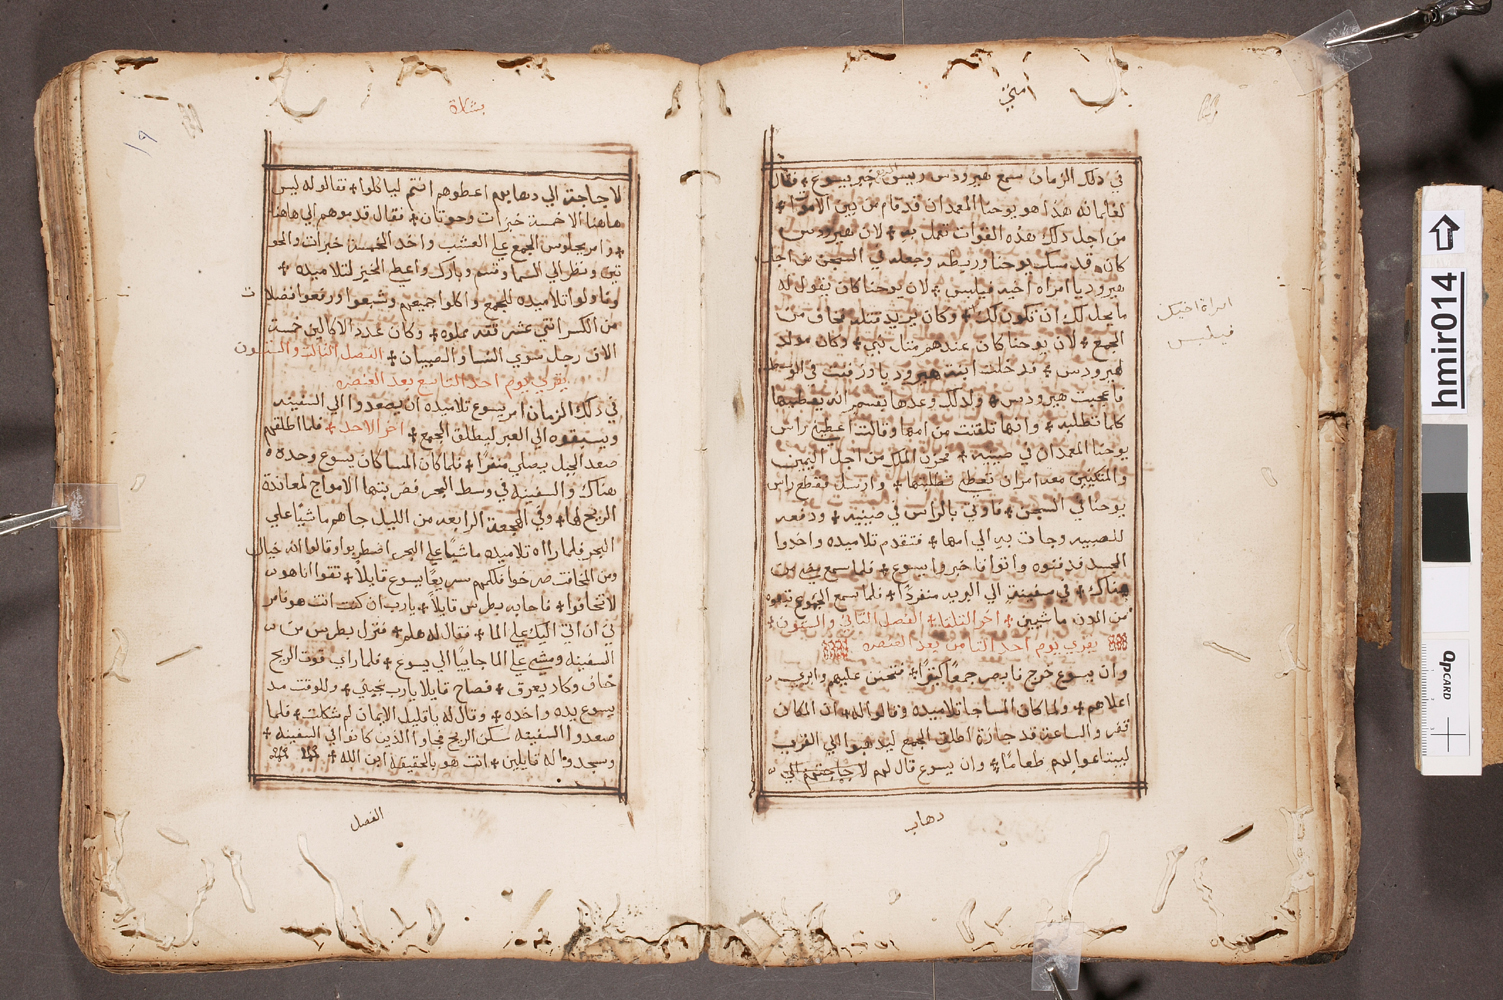 متي
في ذلك الزمان سمع هيرودس رييس الربع خبر يسوع + فقال
لغلمانه هذا هو يوحنا المعمدان قد قام من بين الاموات +
من اجل ذلك هذه القوات تعمل به + لان هيرودس
كان قد مسك يوحنا وربطه وجعله في السجن من اجل
هيروديا امراة اخيه فيلبس + لان يوحنا كان يقول له
ما يحل لك ان تكون لك + وكان يريد قتله فخاف من
الجمع + لان يوحنا كان عندهم مثل نبي + وكان مولد
لهيرودس + فدخلت ابنة هيروديا ورقصت في الوسط
فاعجبت هيرودس + ولذلك وعدها بقسم انه يعطيها
كلما تطلبه + وانها تلقنت من امها وقالت اعطيني راس
يوحنا المعمدان في صينيه + فحزن الملك من اجل اليمين
والمتكيين معه امر ان تعطي تطلبها + وارسل فقطع راس
يوحنا في السجن + فاوتي بالراس في صينيه + ودفعه
للصبيه وجات به الي امها + فتقدم تلاميده واخدوا
الجسد فدفنوه واتوا فاخبروا يسوع + فلما سمع يسوع مضي من
هناك + في سفينة الي البريه منفردًا + فلما سمع الجموع تبعوه
من المدن ماشيين + اخر الثلثا + الفصل الثاني والستون +
يقري يوم احد الثامن بعد العنصره
وان يسوع خرج فابصر جمعًا كثيرًا + فتحنن عليهم وابري
اعلاهم + ولما كان المسا جا تلاميده وقالوا له + ان المكان
قفر والساعة قد جازة اطلق الجمع ليدهبوا الي القري
ليبتاعوا لهم طعامًا + وان يسوع قال لهم لا حاجتهم الي
دهاب
امراة اخيك
فيلبس
بشارة
١٩
لا حاجة الي دهابهم اعطوهم انتم لياكلوا + فقالو له ليس
هاهنا الا خمسة خبزات وحوتان + فقال قدموهم الي هاهنا
وامر بجلوس الجمع علي العشب واخد الخمسة خبزات والحو
تين ونظر الي السما وقسم وبارك واعطي الخبز لتلاميده +
وناولوا تلاميده للجمع واكلوا جميعهم وشبعوا ورفعوا فضلات
من الكسر اثني عشر قفه مملوه + وكان عدد الاكالين خمسة
الاف رجل سوي النسا والصبيان + الفصل الثالث والستون
يقري يوم احد التاسع بعد العنصره
في ذلك الزمان امر يسوع تلاميده ان يصعدوا الي السفينه
ويسبقوه الي العبر ليطلق الجمع + اخر الاحد + فلما اطلقهم
صعد الجبل يصلي منفردًا + فلما كان المسا كان يسوع وحده
هناك والسفينه في وسط البحر فضربتها الامواج لمعاندة
الريح لها + وفي الهجعة الرابعه من الليل جاهم ماشيًا علي
البحر فلما راه تلاميده ماشيًا علي البحر اضطربوا وقالوا انه خيال
ومن المخافة صرخوا فكلمهم سريعًا يسوع قايلًا + تقوا انا هو
لا تخافوا + فاجابه بطرس قايلًا + يارب ان كنت انت هو فامر
ني ان اتي اليك علي الما + فقال له هلم + فنزل بطرس من
السفينه ومشي علي الما جاييًا الي يسوع + فلما راي قوة الريح
خاف وكاد يغرق + فصاح قايلا يارب نجيني + وللوقت مد
يسوع يده واخده + وقال له ياقليل الايمان لم شككت + فلما
صعدوا السفينه سكن الريح فجاوا الذين كانو في السفينه +
وسجدوا له قايلين + انت هو بالحقيقه ابن الله +
الفصل
hmir014
QPCARD